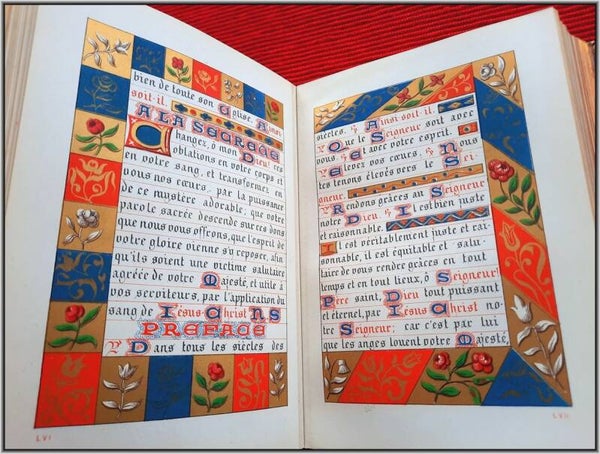 bien de toute son Eglise. Ainsi
soit-il.
A LA SECRETE
Changez, ô mon Dieu! ces
oblations en votre corps et
en votre sang, et transformez en
vous nos cœurs, par la puissance
de ce mystère adorable; que votre
parole sacrée descende sur ces dons
que nous vous offrons, que l'esprit de
votre gloire vienne s'y reposer, afin
qu'ils soient une victime salutaire
agréée de votre Majesté, et utile à
vos serviteurs, par l'application du
sang de Jésus Christ A N S
PREFACE
℣ Dans tous les siècles des
LVI
siècles. ℟ Ainsi soit-il.
℣ Que le Seigneur soit avec
vous. ℟ Et avec votre esprit.
℣ Elevez vos cœurs. ℟ Nous
les tenons élevés vers le Sei-
gneur.
℣ Rendons grâces au Seigneur
notre Dieu. ℟ Il est bien juste
et raisonnable.
Il est véritablement juste et rai-
sonnable, il est équitable et salu-
taire de vous rendre grâces en tout
temps et en tout lieux, ô Seigneur!
Père saint, Dieu tout puissant
et éternel, par Jésus Christ no-
tre Seigneur; car c'est par lui
que les anges louent votre Majesté,
LVII